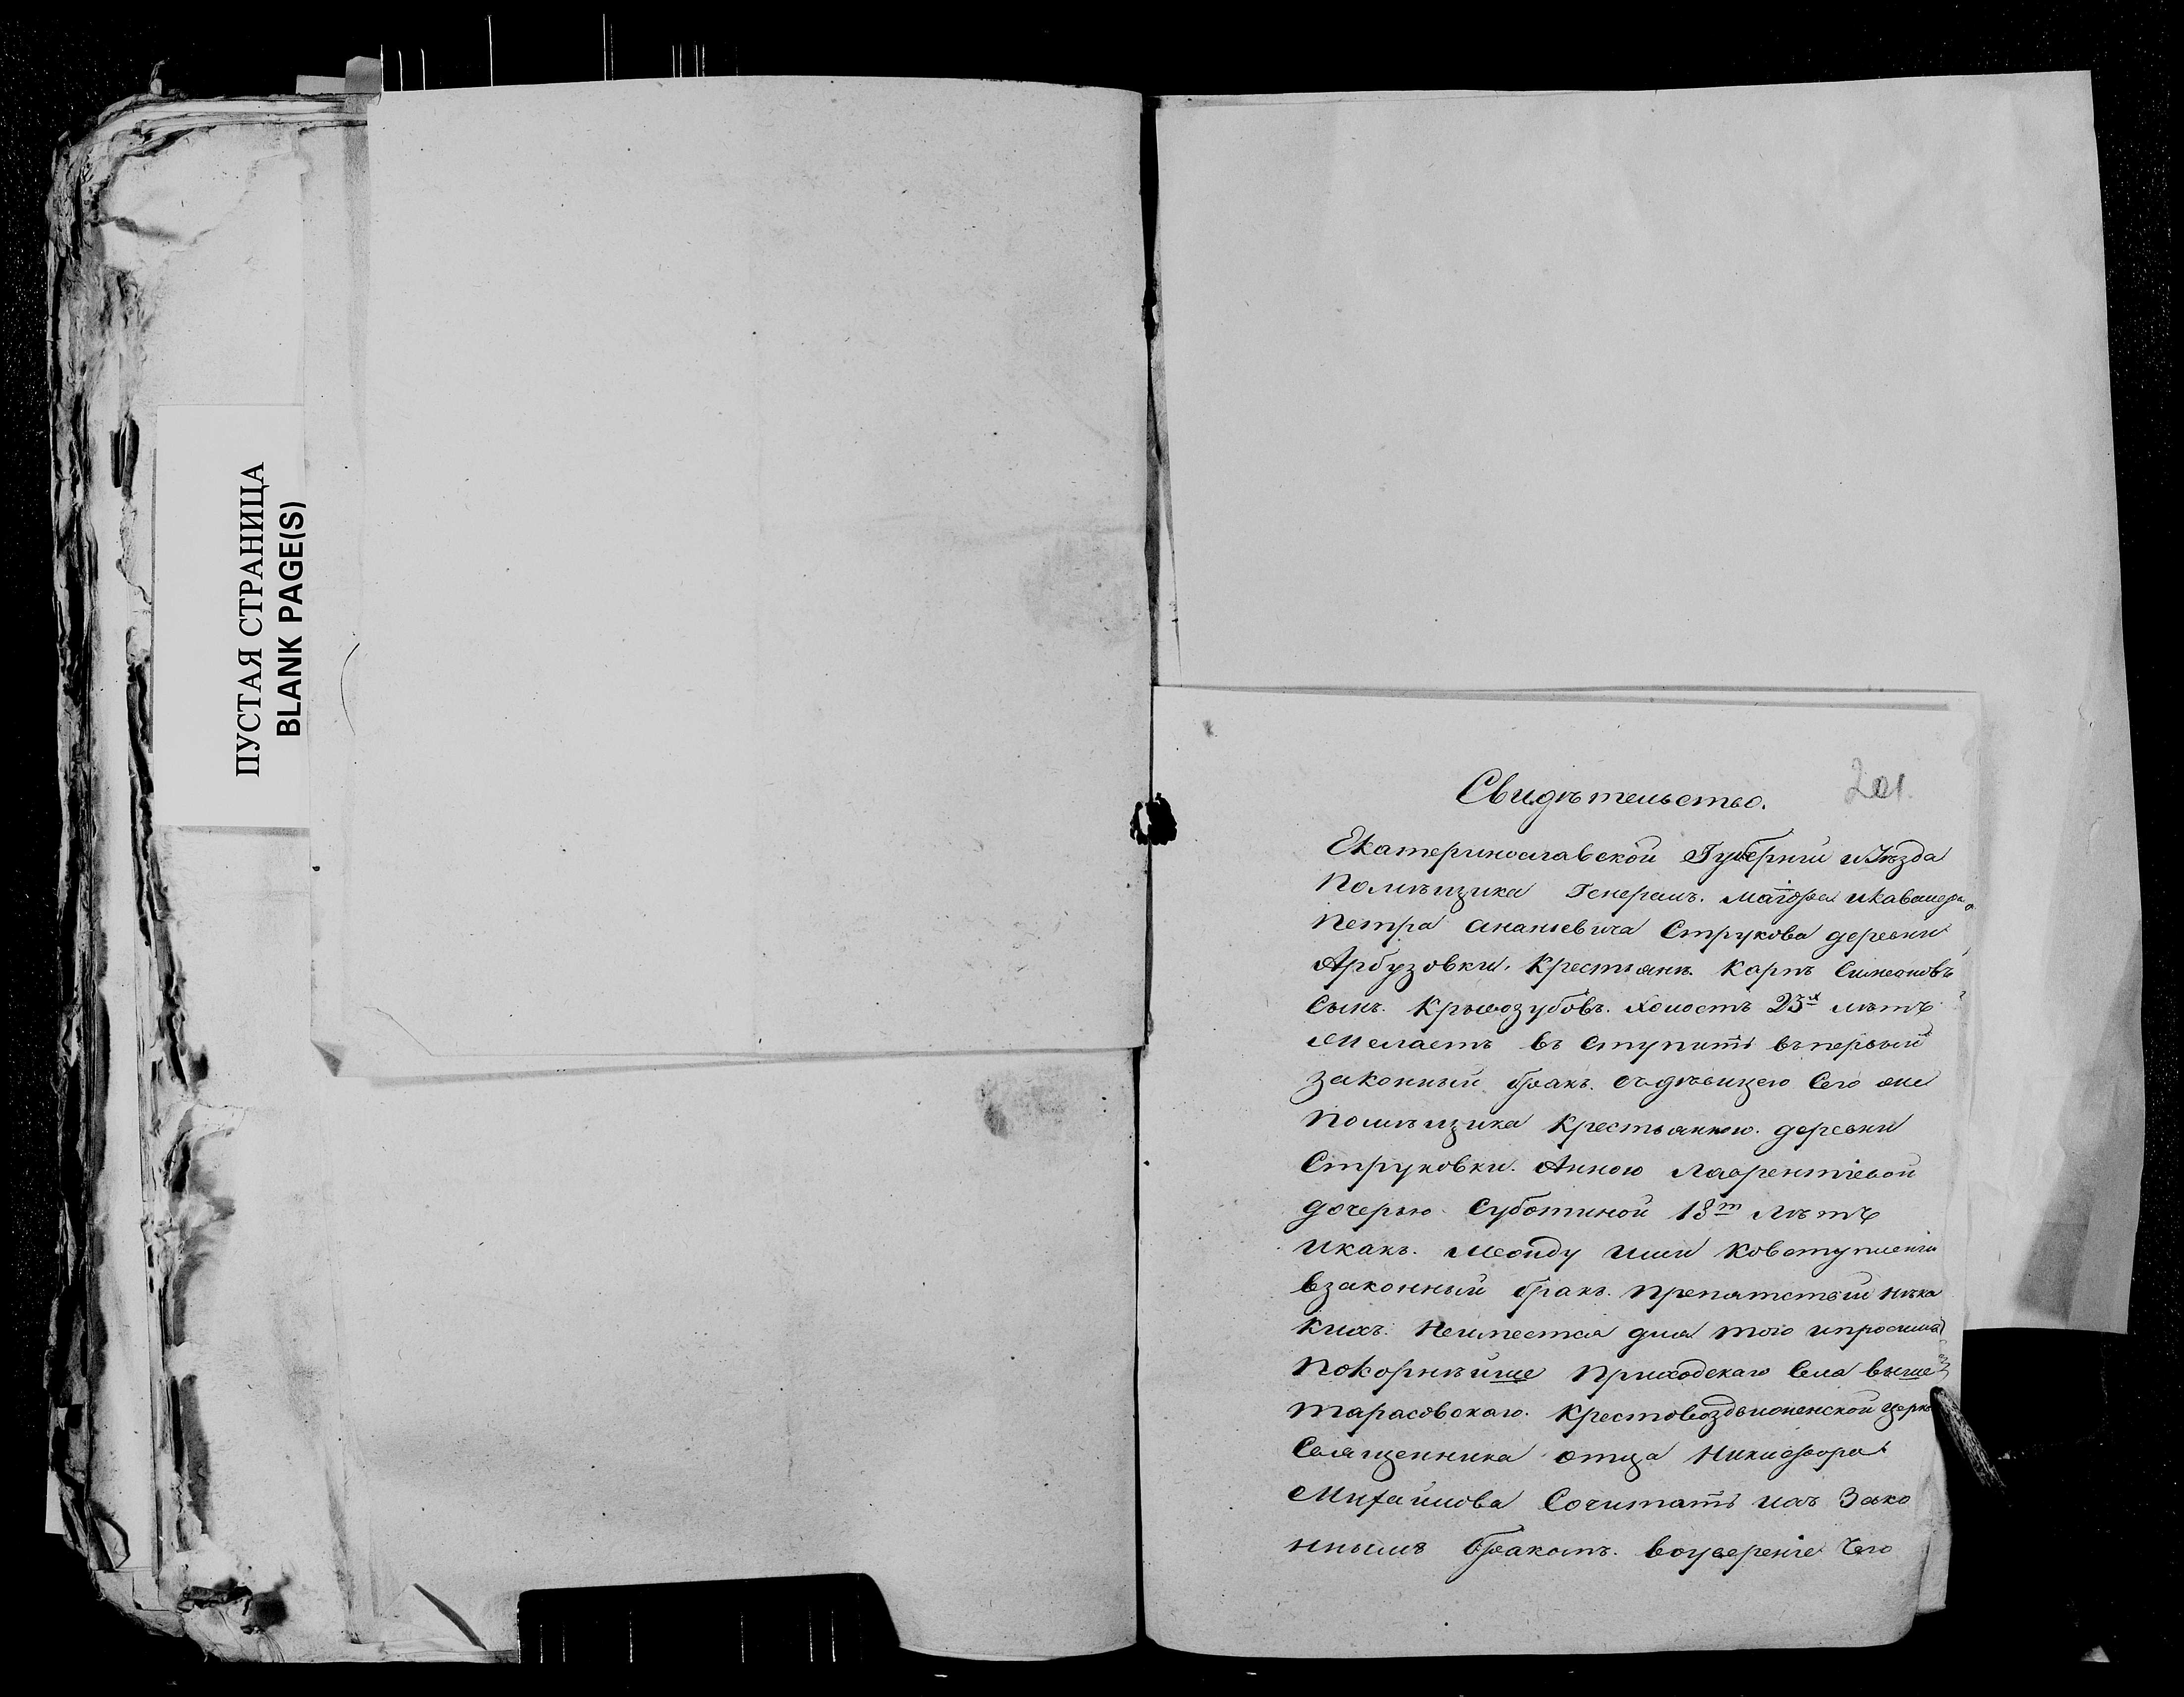 ПУСТАЯ СТРАНИЦА
BLANK PAGE(S)
201.
Свидѣтельство.
Екатеринославской Губернии и Уѣзда
Помѣщика Генералъ. Маiора и Кавалера
Петра Ананьевича Струкова деревни
Арбузовки. Крестьянъ. Карпъ Симеоновъ
Сынъ. Кривозубовъ. холостъ 23х лѣтъ
Желаетъ въ ступить въ первый
законный бракъ. съ дѣвицею Сего же
Помѣщика Крестьянкою. деревни
Струковки. Анною Лаврентiевой
дочерью Суботиной 18т лѣтъ
и какъ. между ими ко вступленiи
в законный бракъ. препятствiй нѣка
кихъ. Неимеется для того и просимъ
Покорнѣйше Приходскаго Села выше
тарасовскаго. Крестовоздвиженской церкв
Священника отца Никифора
Михайлова Сочитать ихъ Зако
ннымъ бракомъ. во уверенiе Чего